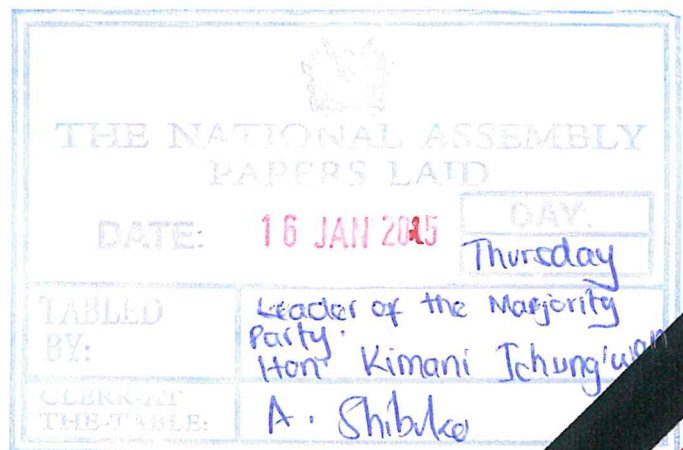 THE NATIONAL ASSEMBLY
PAPERS LAID
DATE: 16 JAN 2025 DAY:
Thursday
TABLED BY: Leader of the Marjority
Party.
Hon. Kimani Ichung'wah
CLERK-AT
THE-TABLE: A. Shibuko